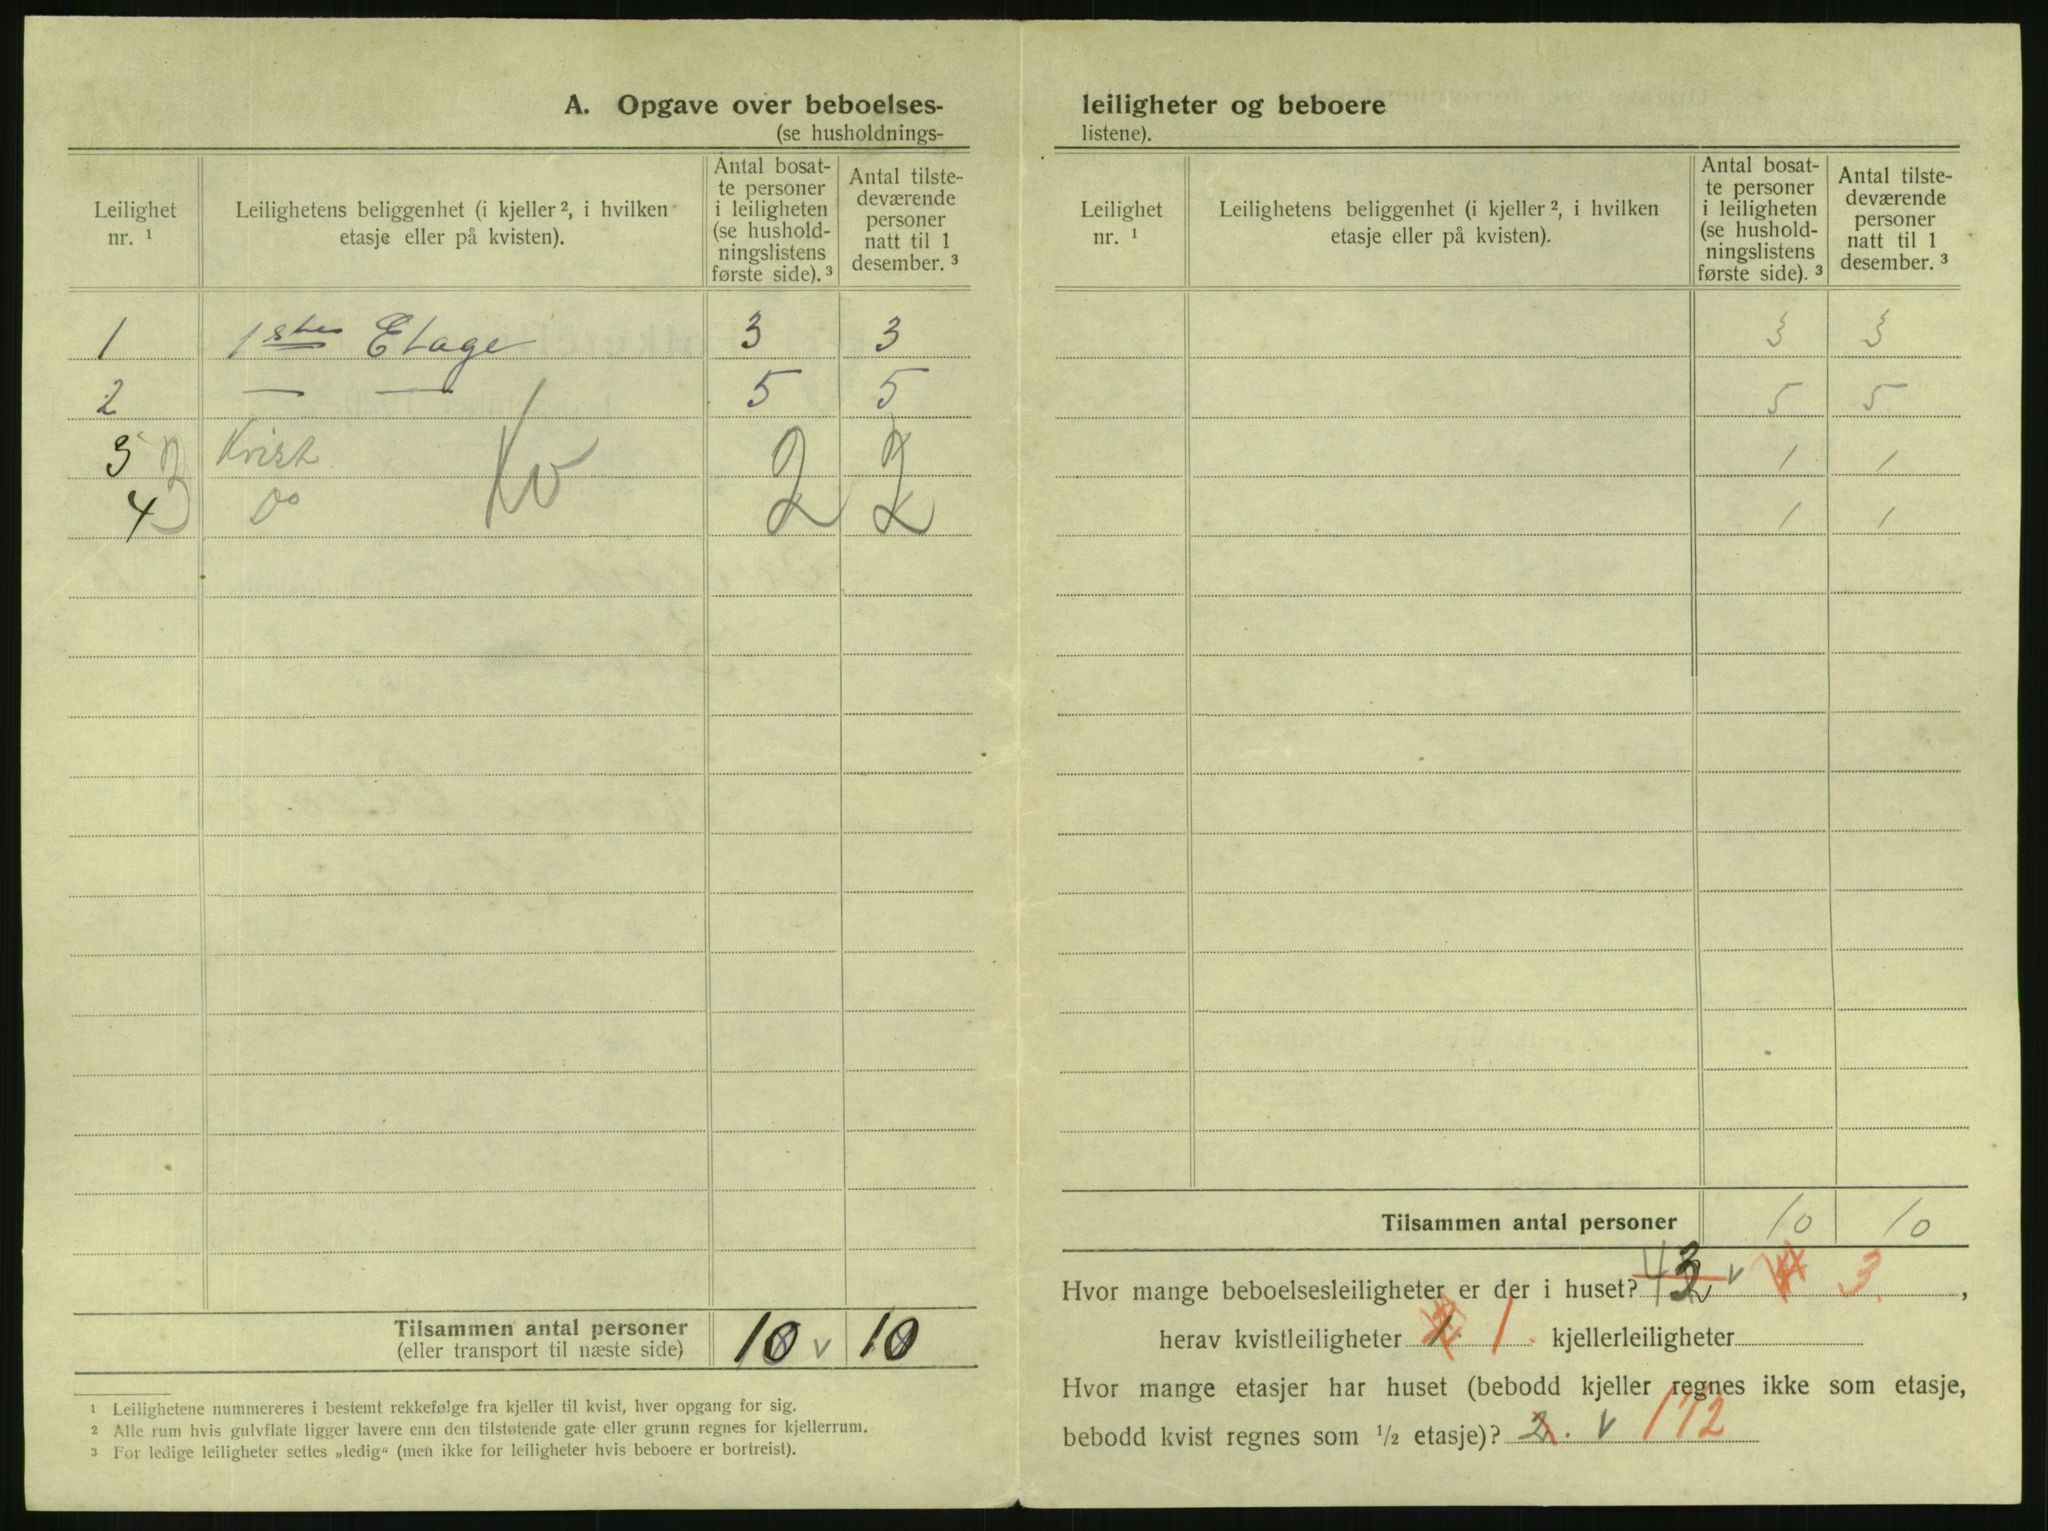 A. Opgave over beboelses-
(se husholdnings-
Leilighet
nr. ¹
Leilighetens beliggenhet (i kjeller ², i hvilken
etasje eller på kvisten).
Antal bosat-
te personer
i leiligheten
(se hushold-
ningslistens
første side). ³
Antal tilste-
deværende
personer
natt til 1
desember. ³
1 1ste Etage 3 3
2 — — 5 5
3 Kvist Kv 2 2
4 Do
Tilsammen antal personer 10 v 10
(eller transport til næste side)
¹ Leilighetene nummereres i bestemt rekkefølge fra kjeller til kvist, hver opgang for sig.
² Alle rum hvis gulvflate ligger lavere enn den tilstøtende gate eller grunn regnes for kjellerrum.
³ For ledige leiligheter settes „ledig“ (men ikke for leiligheter hvis beboere er bortreist).
leiligheter og beboere
listene).
Leilighet
nr. ¹
Leilighetens beliggenhet (i kjeller ², i hvilken
etasje eller på kvisten).
Antal bosat-
te personer
i leiligheten
(se hushold-
ningslistens
første side). ³
Antal tilste-
deværende
personer
natt til 1
desember. ³
3 3
5 5
1 1
1 1
Tilsammen antal personer 10 10
Hvor mange beboelsesleiligheter er der i huset? 4 3 v 4 3. ,
herav kvistleiligheter 1. 1. kjellerleiligheter
Hvor mange etasjer har huset (bebodd kjeller regnes ikke som etasje,
bebodd kvist regnes som ½ etasje)? 2. v 1 1/2